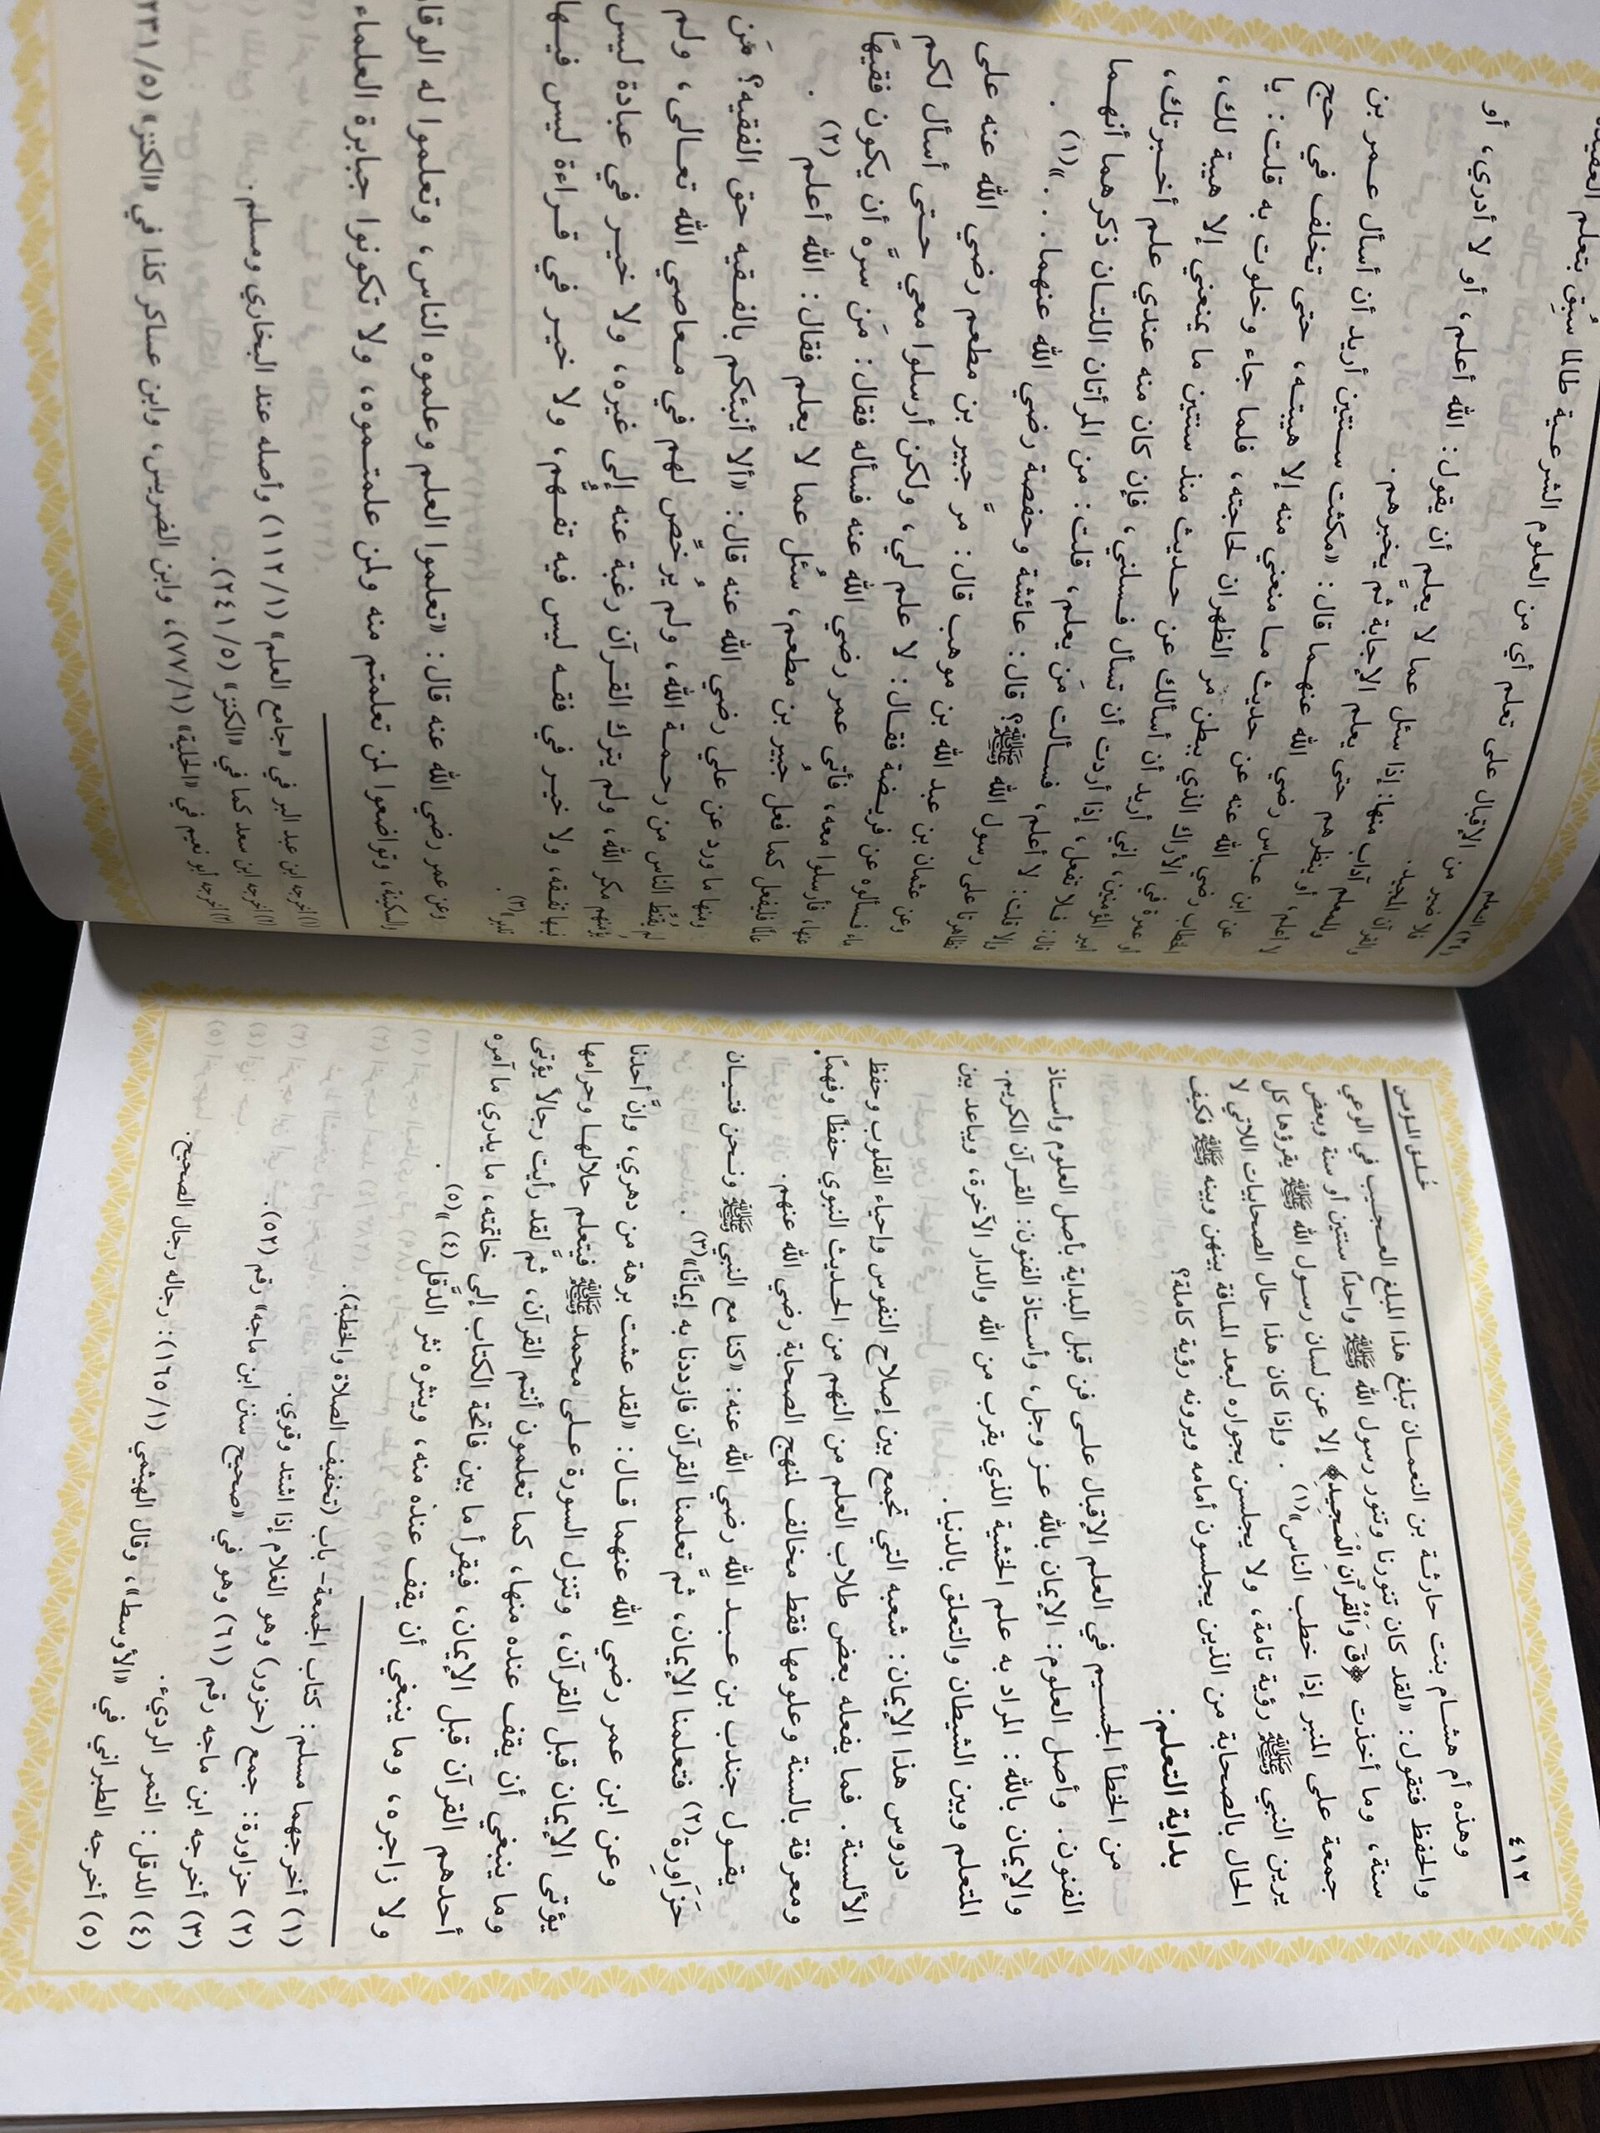 ٤١٢
خُلق المؤمن
وهذه أم هشام بنت حارثة بن النعمان تبلغ هذا المبلغ العجيب في الوعي
والحفظ فتقول: «لقد كان تنورنا وتنور رسول الله ﷺ واحدًا سنتين أو سنة وبعض
سنة، وما أخذت ﴿قَ وَالْقُرْآنِ الْمَجِيدِ﴾ إلا عن لسان رسول الله ﷺ يقرؤها كل
جمعة على المنبر إذا خطب الناس»(١). وإذا كان هذا حال الصحابيات اللاتي لا
يرين النبي ﷺ رؤية تامة، ولا يجلسن بجواره لبعد المسافة بينهن وبينه ﷺ فكيف
الحال بالصحابة من الذين يجلسون أمامه ويرونه رؤية كاملة؟
بداية التعلم:
من الخطأ الجسيم في العلم الإقبال على فن قبل البداية بأصل العلوم وأستاذ
الفنون. وأصل العلوم: الإيمان بالله عز وجل، وأستاذ الفنون: القرآن الكريم.
والإيمان بالله: المراد به علم الخشية الذي يقرب من الله والدار الآخرة، ويباعد بين
المتعلم وبين الشيطان والتعلق بالدنيا.
دروس هذا الإيمان: شعبه التي تجمع بين إصلاح النفوس وإحياء القلوب وحفظ
الألسنة. فما يفعله بعض طلاب العلم من النهم من الحديث النبوي حفظًا وفهمًا.
ومعرفة بالسنة وعلومها فقط مخالف لمنهج الصحابة رضي الله عنهم.
يقول جندب بن عبد الله رضي الله عنه: «كنا مع النبي ﷺ ونحن فتيان
حَزَاوِرة(٢) فتعلمنا الإيمان، ثمَّ تعلمنا القرآن فازددنا به إيمانًا»(٣).
وعن ابن عمر رضي الله عنهما قال: «لقد عشت برهة من دهري، وإنَّ أحدنا
يؤتى الإيمان قبل القرآن، وتنزل السورة على محمد ﷺ فيتعلم حلالها وحرامها
وما ينبغي أن يقف عنده منها، كما تعلمون أنتم القرآن، ثمَّ لقد رأيت رجالاً يؤتى
أحدهم القرآن قبل الإيمان، فيقرأ ما بين فاتحة الكتاب إلى خاتمته، ما يدري ما آمره
ولا زاجره، وما ينبغي أن يقف عنده منه، وينثره نثر الدَّقل(٤)»(٥).
(١) أخرجهما مسلم: كتاب الجمعة- باب (تخفيف الصلاة والخطبة).
(٢) حزاورة: جمع (حزور) وهو الغلام إذا اشتد وقوي.
(٣) أخرجه ابن ماجه رقم (٦١) وهو في «صحيح سنن ابن ماجه» رقم (٥٢).
(٤) الدقل: التمر الرديء.
(٥) أخرجه الطبراني في «الأوسط»، وقال الهيثمي (١/١٦٥): رجاله رجال الصحيح.
(٣٠) التعلم
فلا ضير من الإقبال على تعلم أي من العلوم الشرعية طالما سُبِق بتعلم العقيدة
والقرآن المجيد.
وللمعلم آداب منها: إذا سئل عما لا يعلم أن يقول: الله أعلم، أو لا أدري، أو
لا أعلم، أو ينظرهم حتى يعلم الإجابة ثمَّ يخبرهم.
عن ابن عباس رضي الله عنهما قال: «مكثت سنتين أريد أن أسأل عمر بن
الخطاب رضي الله عنه عن حديث ما منعني منه إلا هيبته، حتى تخلف في حج
أو عمرة في الأراك الذي ببطن مر الظهران لحاجته، فلما جاء وخلوت به قلت: يا
أمير المؤمنين، إني أريد أن أسألك عن حديث منذ سنتين ما يمنعني إلا هيبة لك،
قال: فلا تفعل، إذا أردت أن تسأل فسلني، فإن كان منه عندي علم أخبرتك،
وإلا قلت: لا أعلم، فسألت مَن يعلم، قلت: من المرأتان اللتان ذكرهما أنهما
تظاهرتا على رسول الله ﷺ؟ قال: عائشة وحفصة رضي الله عنهما. . . »(١).
وعن عثمان بن عبد الله بن موهب قال: مرَّ جبير بن مطعم رضي الله عنه على
ماء فسألوه عن فريضة فقال: لا علم لي، ولكن أرسلوا معي حتى أسأل لكم
عنها، فأرسلوا معه، فأتى عمر رضي الله عنه فسأله فقال: مَن سرَّه أن يكون فقيهًا
عالمًا فليفعل كما فعل جُبير بن مطعم، سُئل عما لا يعلم فقال: الله أعلم(٢).
ومنها ما ورد عن علي رضي الله عنه قال: «ألا أنبئكم بالفقيه حق الفقيه؟ مَن
لم يُقنِّط الناس من رحمة الله، ولم يرخِّص لهم في معاصي الله تعالى، ولم
يؤمنهم مكر الله، ولم يترك القرآن رغبة عنه إلى غيره، ولا خير في عبادة ليس
فيها تفقه، ولا خير في فقه ليس فيه تفهم، ولا خير في قراءة ليس فيها
تدبر»(٣).
وعن عمر رضي الله عنه قال: «تعلموا العلم وعلموه الناس، وتعلموا له الوقار
والسكينة، وتواضعوا لمن تعلمتم منه ولمن علمتموه، ولا تكونوا جبابرة العلماء
(١) أخرجه ابن عبد البر في «جامع العلم» (١/١١٢) وأصله عند البخاري ومسلم.
(٢) أخرجه ابن سعد كما في «الكنز» (٥/٢٤١).
(٣) أخرجه أبو نعيم في «الحلية» (١/٧٧)، وابن الضريس، وابن عساكر كذا في «الكنز» (٥/٢٣١